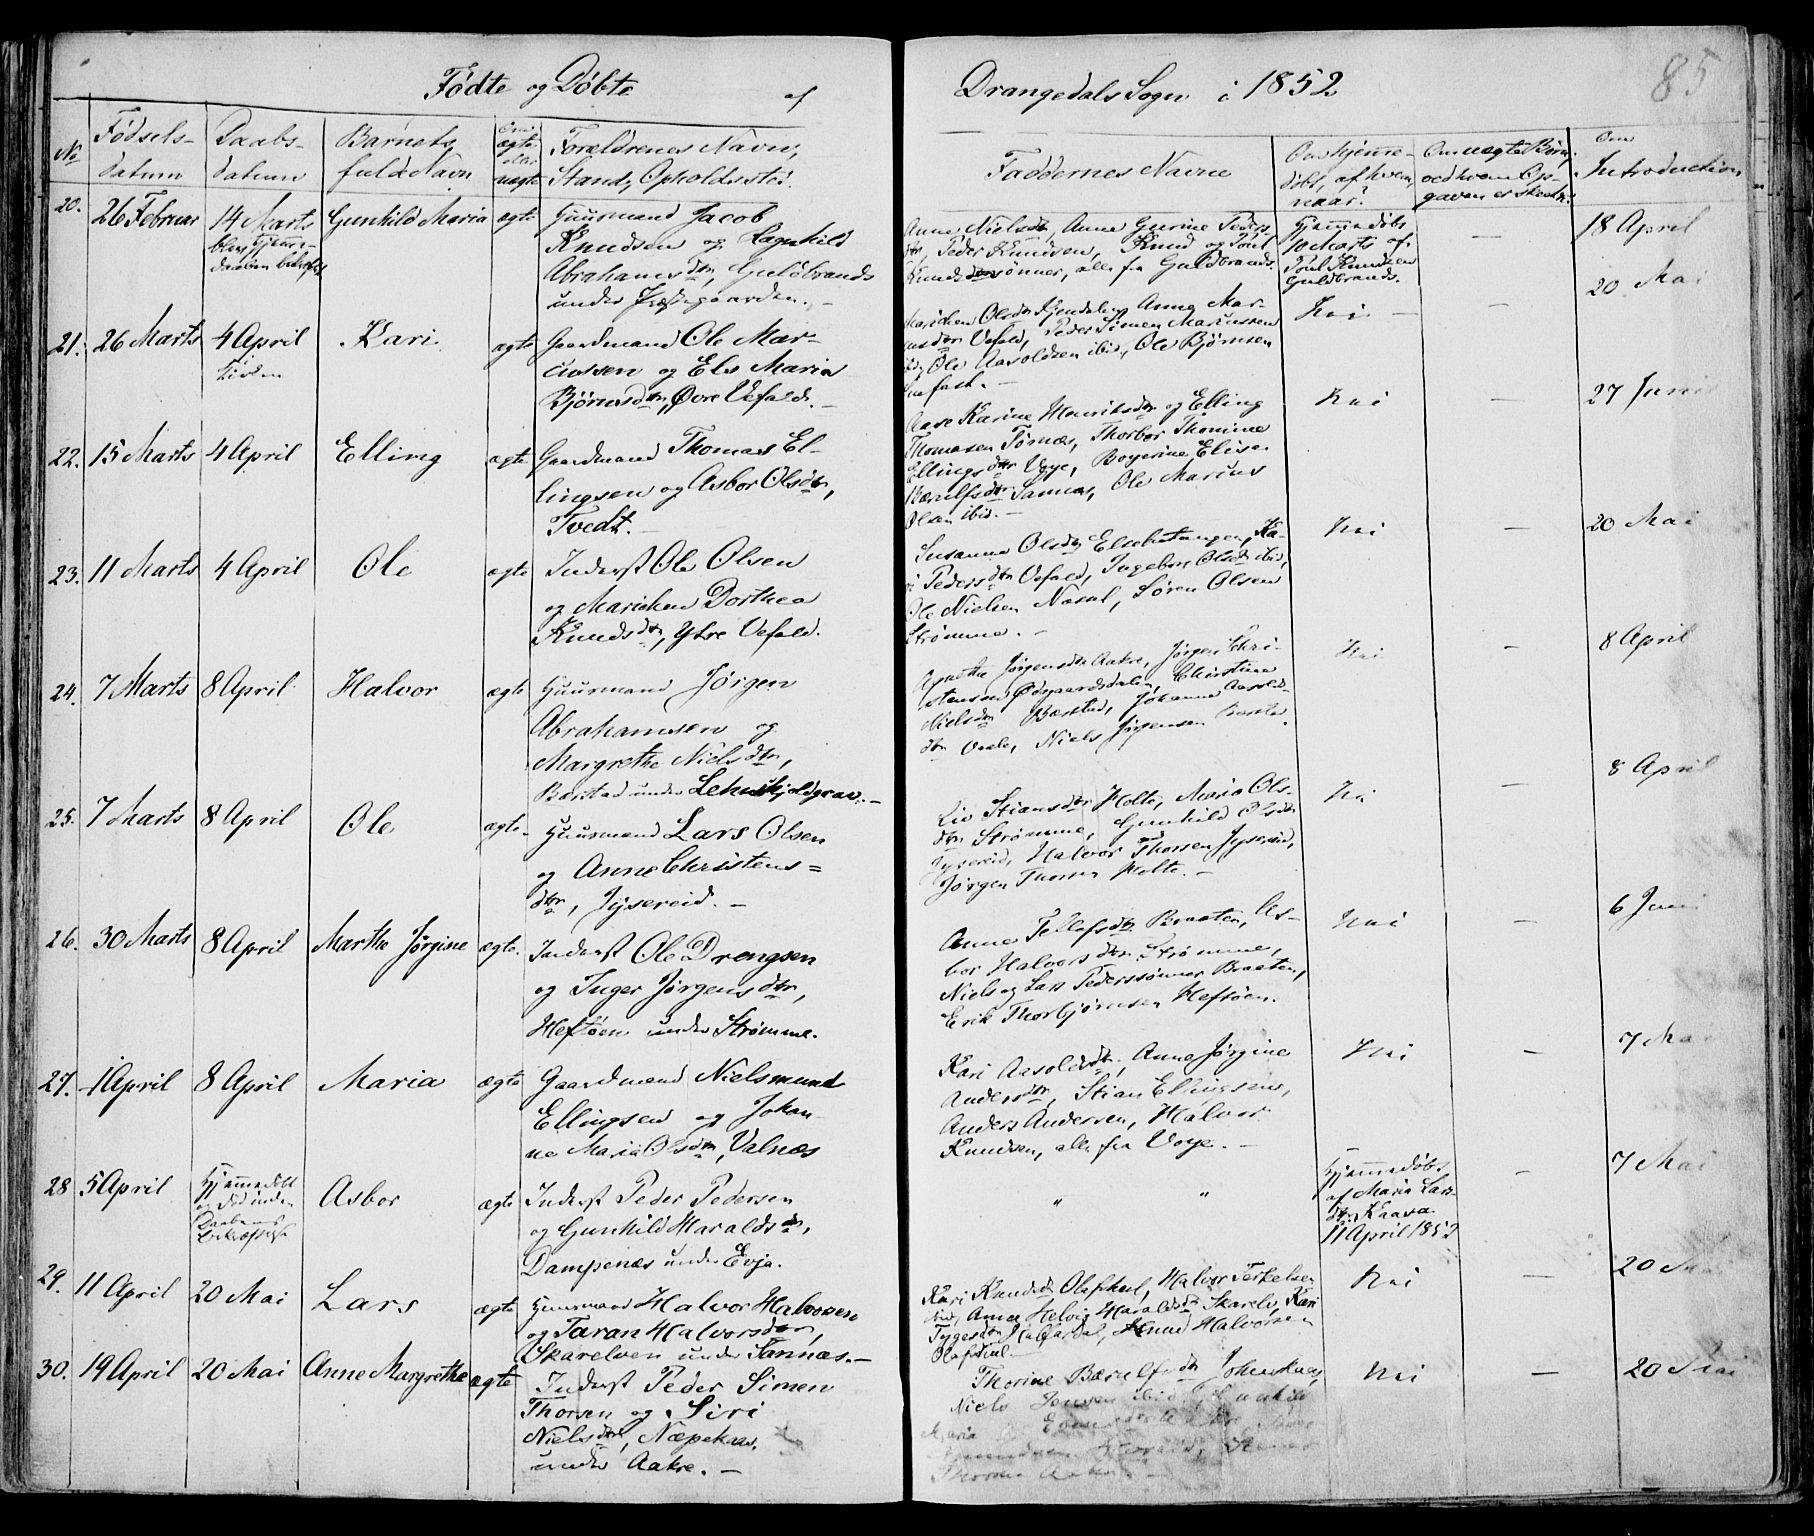 Fødte og Døbte af Drangedals Sogn i 1852
85
No
Fødsels-
Datum
Daabs-
datum
Barnets
fulde Navn
Om
ægte
eller
uægte
Forældrenes Navn,
Stand, Opholdssted.
Faddernes Navne
Om hjemme-
døbt, af hvem,
naar?
Om uægte Børn
ved hvem Op-
gaven er skeet.
Om
Introduction
20.
26 Februar
14 Marts
blev Hjemme-
daaben bekræftet
Gunhild Maria
ægte
Huusmand Jacob
Knudsen og Ragnhild
Abrahamsdtr, Guldbrands
under Præstegaarden. -
Anne Nielsdtr, Anne Gurine Peders-
dtr, Peder Knudsen, Knud og Poul
Knudssønner, alle fra Guldbrands.
Hjemmedøbt
10 Marts af
Poul Knudsen
Guldbrands.
-
18 April
21.
26 Marts
4 April
Kirken
Kari
ægte
Gaardmand Ole Mar-
cussen og Els Maria
Bjørnsdtr, Øvre Vefald. -
Mariken Olsdtr Kjendalen, Anne Mar-
cusdtr Vefald, Peder Simen Marcussen
ibid, Ole Aasoldsen ibid, Ole Bjørnsen
Nei
-
20 Mai
22.
15 Marts
4 April
Elling
ægte
Gaardmand Thomas El-
lingsen og Asbor Olsdtr,
Tvedt. -
Aase Karine Henriksdtr og Elling
Thomasen Tørnes, Thorbor Thomine
Ellingsdtr Voje, Boyerine Elise
Bærulfsdtr Sannæs, Ole Marius
Olsen ibid. -
Nei
-
27 Juni
23.
11 Marts
4 April
Ole
ægte
Inderst Ole Olsen
og Mariken Dorthea
Knudsdtr, Ytre Vefald.
Susanne Olsdtr Elsebutangen, Ka-
ri Pedersdtr Vefald, Ingebor Olsdtr ibid,
Ole Nielsen Næsel, Søren Olsen
Strømme. -
Nei
-
20 Mai
24.
7 Marts
8 April
Halvor
ægte
Huusmand Jørgen
Abrahamsen og
Margrethe Nielsdtr,
Barstad under Lehnskjoldgrav. -
Agnethe Jørgensdtr Aakre, Jørgen Chri-
stensen Ødegaardsdalen, Christine
Nielsdtr Barstad, Johanne Aasolds-
dtr Voale, Niels Jørgensen
Nei
-
8 April
25.
7 Marts
8 April
Ole
ægte
Huusmand Lars Olsen
og Anne Christens-
dtr, Jysereid. -
Liv Stiansdtr Holte, Maria Ols-
dtr Strømme, Gunhild Olsdtr
Jysereid, Halvor Thorsen Jysereid,
Jørgen Thorsen Holte. -
Nei
-
8 April
26.
30 Marts
8 April
Marthe Jørgine
ægte
Inderst Ole Drengsen
og Inger Jørgensdtr,
Heftøen under Strømme.
Anne Tellefsdtr Braaten, As-
bor Halvorsdtr Strømme,
Niels og Lars Pederssønner Braaten,
Erik Thorbjørnsen Heftøen.
Nei
-
6 Juni
27.
1 April
8 April
Maria
ægte
Gaardmand Nielsmund
Ellingsen og Johan-
ne Maria Olsdtr, Valnæs
Kari Aasoldsdtr, Anne Jørgine
Andersdtr, Stian Ellingsen,
Anders Andersen, Halvor
Knudsen, alle fra Voje. -
Nei
-
7 Mai
28
5 April
Hjemmedøbt
og død inden
Daabens
Bekræftelse
Asbor
ægte
Inderst Peder Pedersen
og Gunhild Haraldsdtr,
Dampenæs under Evja.
" "
Hjemmedøbt
af Maria Lars-
dtr Kaasa
11 April 1852
-
7 Mai
29.
11 April
20 Mai
Lars
ægte
Huusmand Halvor Halvorsen
og Taran Halvorsdtr,
Skarelven under Sannæs. -
Kari Knudsdtr Olafskul, Halvor Terkelsen
ibid, Anne Helvig Haraldsdtr Skarelv, Kari
Tygesdtr, Knud Halvorsen
Olafskul -
Nei
-
20 Mai
30.
19 April
20 Mai
Anne Margrethe
ægte
Inderst Peder Simen
Thorsen og Siri
Nielsdtr, Næpekaas,
under Aakre. -
Thorine Bærulfsdtr
Niels Jensen ibid, Gunhild
Maria
Thorsen
Nei
-
20 Mai